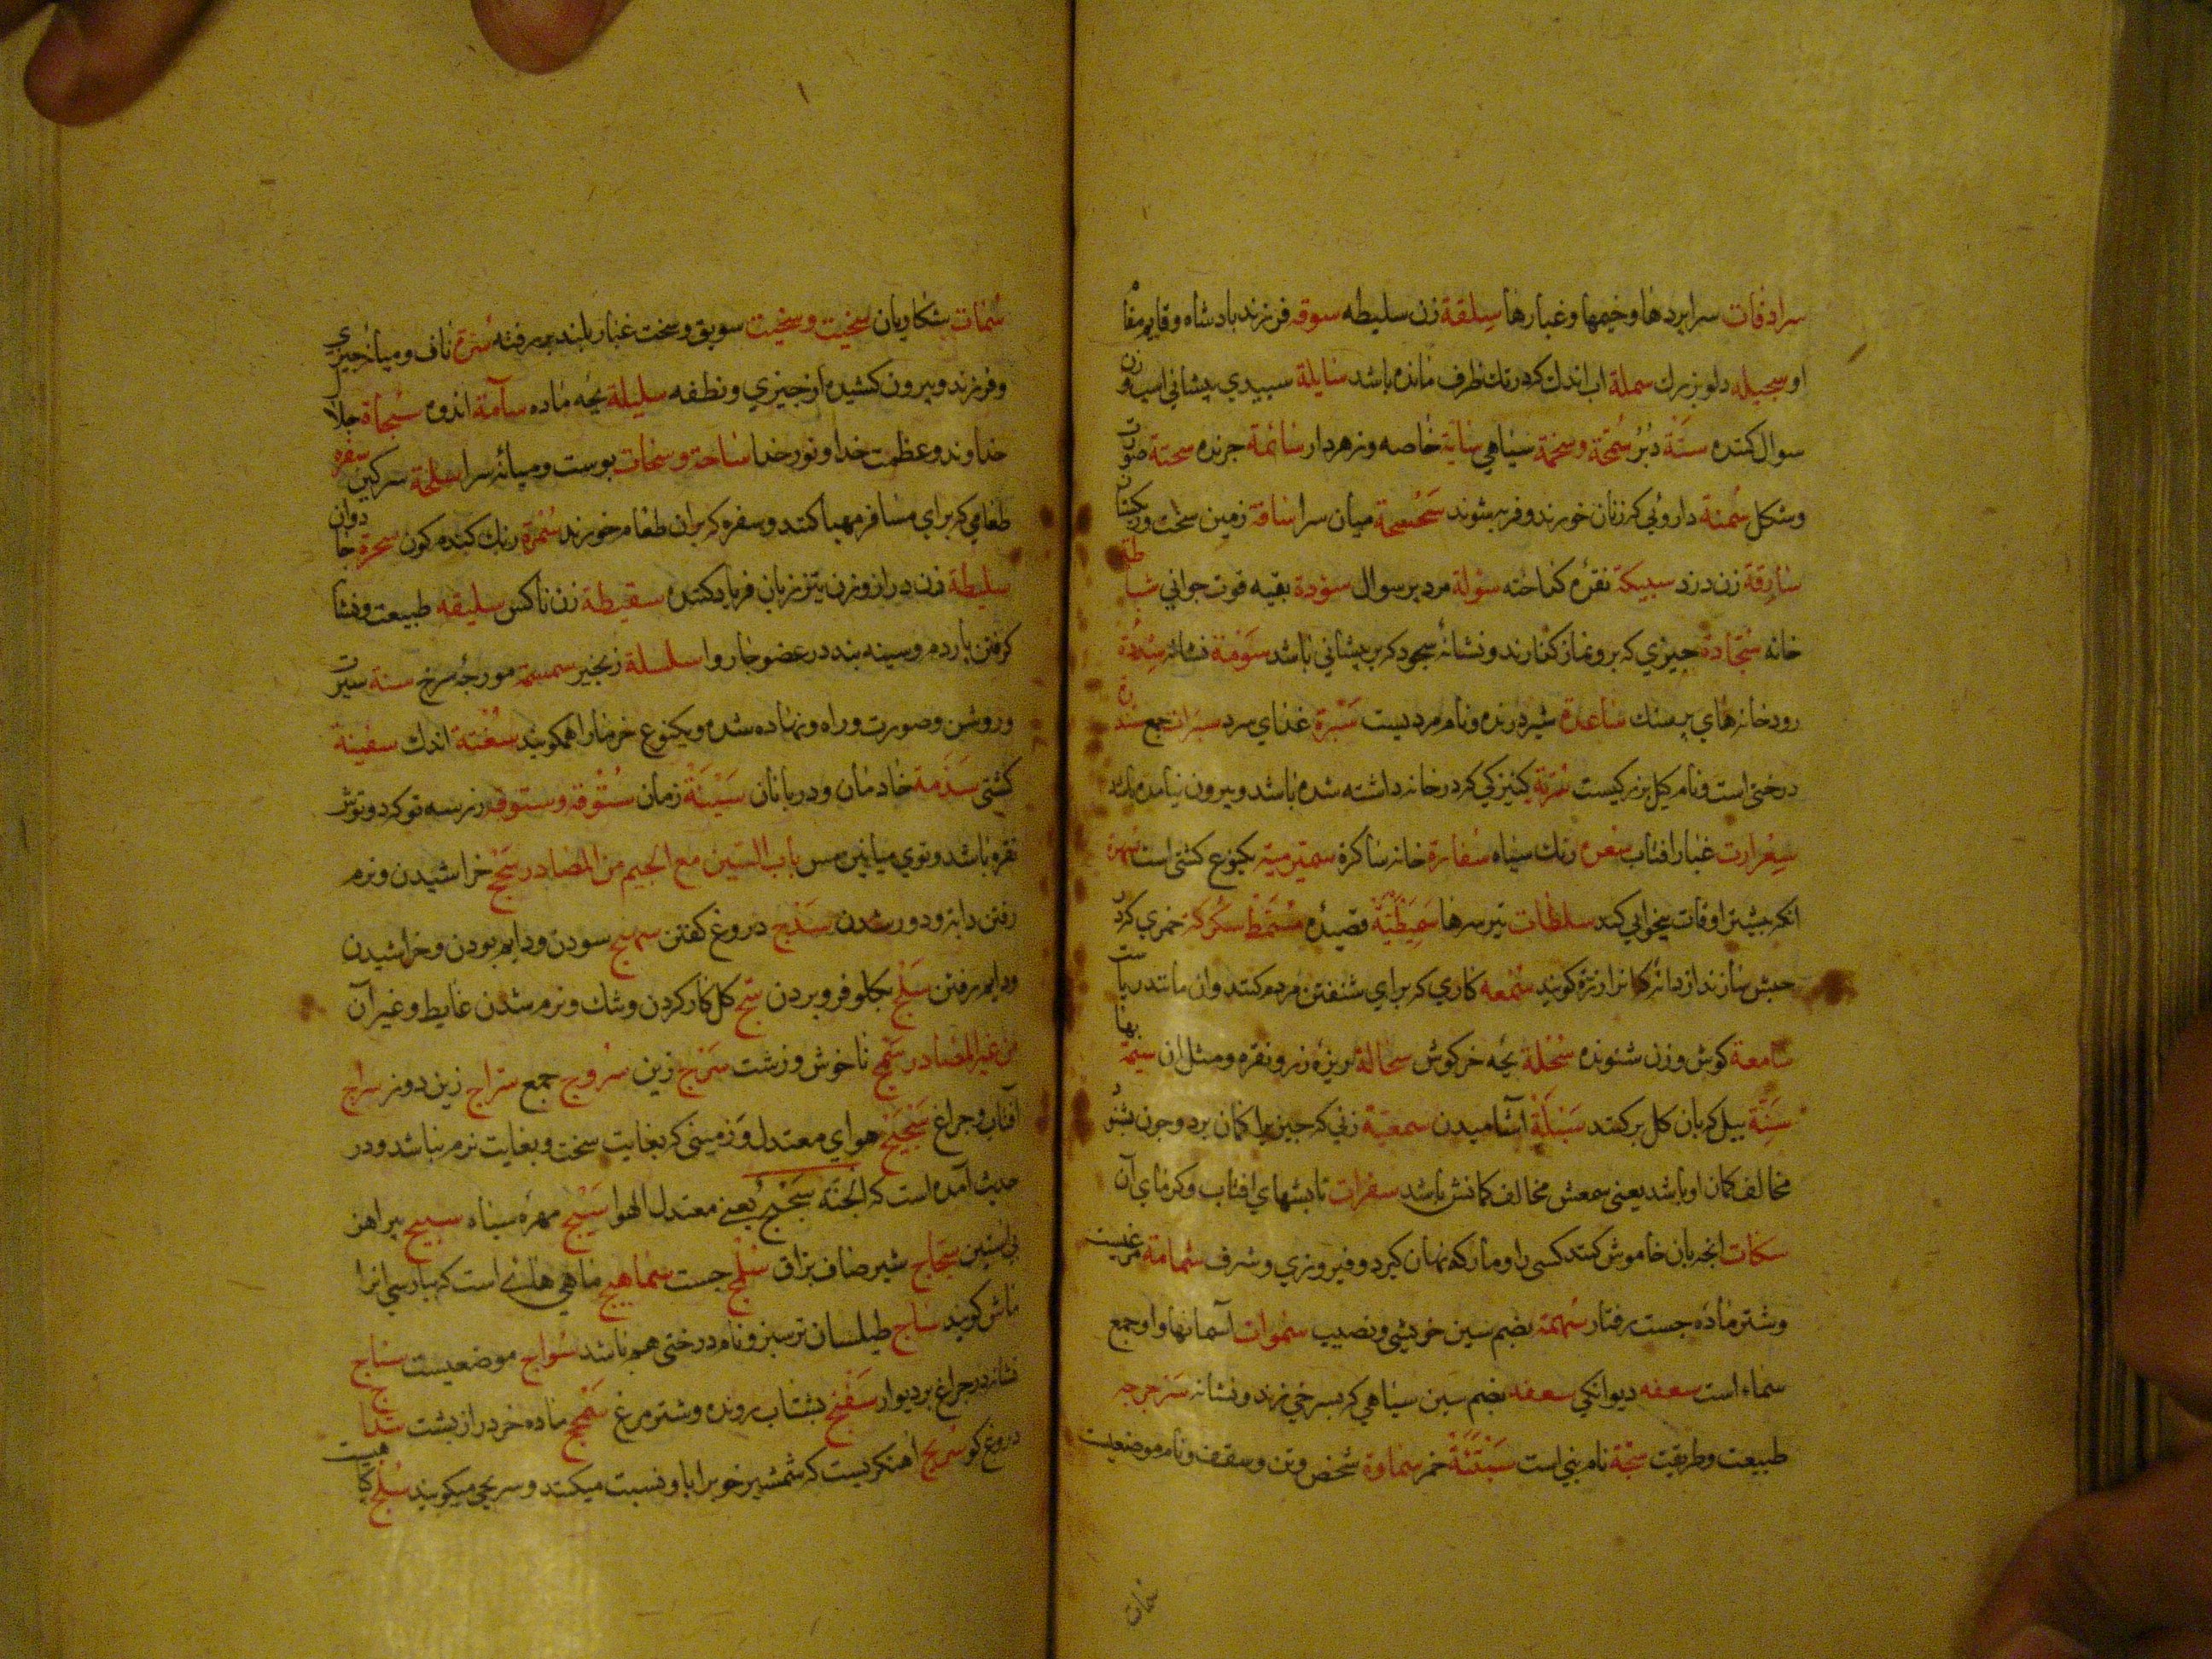 سرادقات سرابردها وخیمها وغبارها سلقة زن سلیطه سوقه فرزند بادشاه وقایم مقام
او سجیله دلو بزرك سملة اب اندك که در تك ظرف مانده باشد سایلة سبیدي بیشاني اسب و زن
سوال کننده ستة دبر سحمة وسخمة سیاهي سایة خاصه وزهردار سائمة جرنده سحنة صورت
وشکل سمنة داروئي که زنان خورند و فربه شوند سحسحة میان سرا ساقة زمین سخت و ریکستان
سارقة زن دزد سبیکة نقرهٔ کداخته سؤلة مرد بر سوال سؤدة بقیه قوت جواني شباطة
خانه سجادة جیزي که برو نماز کذارند و نشانهٔ سجود که بر بیشاني باشد سومة نشانه سدة
رودخانهاي برسنك ساعدة شیر درنده و نام مردیست سبرة غداي سرد سبرات جمع سندرة
درختي است و نام کیل بزرکیست سریة کنیزکي که در خانه داشته شده باشد و بیرون نیامده باشد
سفرارت غبار افتاب سعرة رنك سیاه سفارة خانه ساکرة سمیریة یکنوع کشتی است سهرة
انکه بیشتر اوقات بیخوابي کند سلطات تیر سرها سمیطیة قصیدهٔ مسمط سکرکة خمري که در
حبش سازند از دانهٔ که انرا ذرة کویند سمعه کاري که براي شنفتن مردم کنند وان مانند ریاست
سامعة کوش و زن شنونده سخلة بچه خرکوش سحالة ریزهٔ زر و نقره و مثل ان سیمة بها
سنة بیل که بان کل برکنند سنبلة اشامیدن سمعیة زني که جیزیرا کمان برد و جون بشنود
مخالف کمان او باشد یعنی سمعش مخالف کمانش باشد سفرات تابشهاي افتاب و کرماي آن
سکات انجه بان خاموش کنند کسی را و مار که نهان کیرد و فیروزي و شرف سمامة مرغیست
وشتر مادهٔ جست رفتار سهمة بضم سین خویشی و نصیب سموات آسمانها و او جمع
سماء است سعفه دیوانکي سعفه بضم سین سیاهي که بسرخي زند و نشانه سرجرجه
طبیعت و طریقت سجة نام بتي است سبنتة خمر سماوة شخص و تن و سقف و نام موضعیست
سمات
سمات شکاریان سخیت وسخیت سویق و سخت غبار بلند بر رفته سرة ناف و میانجیزي
وفرزند و بیرون کشیده از جیزي و نطفه سلیلة بچه ماده سآمة اندوه سبحاة جلال
خداوند و عظمت خدا و نور خدا ساحة وسحات بوست و میانه سرا سلحة سرکین سفره
طعامي که براي مسافر مهیا کنند و سفره که بران طعام خورند سمرة رنك کندم کون سحرة جادوان
سلیطة زن دراز و زن تیز زبان فریاد کننده سقیطة زن ناکس سلیقه طبیعت و نشا
کرفتن باردم و سینه بند در عضو جاروا سلسلة زنجیر سمسمة مورجهٔ سرخ سنة سیرت
وروشن وصورت وراه و نهاده شده و یکنوع خرما را همکویند سغنة اندك سفینة
کشتي سدمة خادمان ودربانان سینة زمان ستوقه و ستوقه زر سه تو که دو توش
نقره باشد و توي میانین مس باب السین مع الجیم من المصادر سحج خراشیدن و نرم
رفتن دابه و دور شدن سدج دروغ کفتن سهج سودن و دایم بودن و خراشیدن
ودایم رفتن سلج بکلو فرو بردن سج کل کار کردن و شك و نرم شدن غایط و غیر آن
من غیر المصادر سمج ناخوش و زشت سرج زین سروج جمع سراج زین دوز سراج
آفتاب و جراغ سجسج هواي معتدل و زمیني که بغایت سخت و بغایت نرم نباشد و در
حدیث آمده است که الجنّة سجسج یعني معتدل الهوا سبج مهرهٔ سیاه سبیج بیراهن
بي استین سجاج شیر صاف بزاق سلج جست سماهیج ماهي هائے است که بپارسي انرا
ماش کویند ساج طیلسان تر سبز و نام درختي هم باشد سواج موضعیست سناج
نشانه در جراغ بر دیوار سفنج بشتاب رونده و شترمرغ سمحج ماده خر دراز بشت سداج
دروغ کو سریج اهنکریست که شمشیر خوبرا باو نسبت میکنند و سریجي میکویند سلج کیاهیست